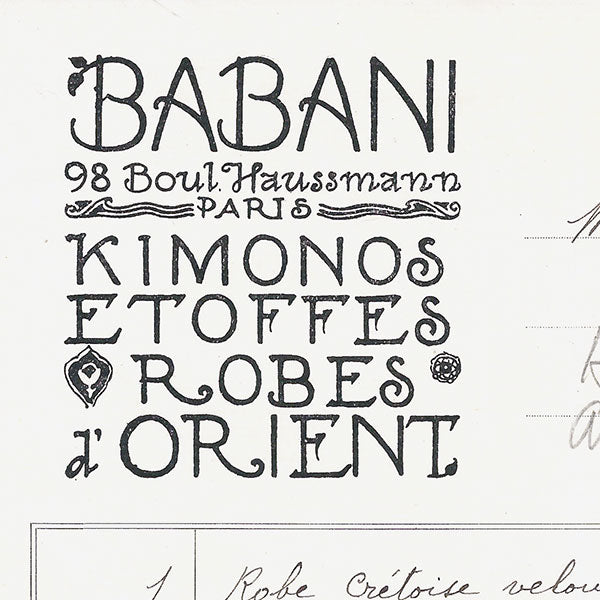 BABANI
98 Boul. Haussmann
PARIS
KIMONOS
ETOFFES
ROBES
d'ORIENT.
1 Robe Crétoise